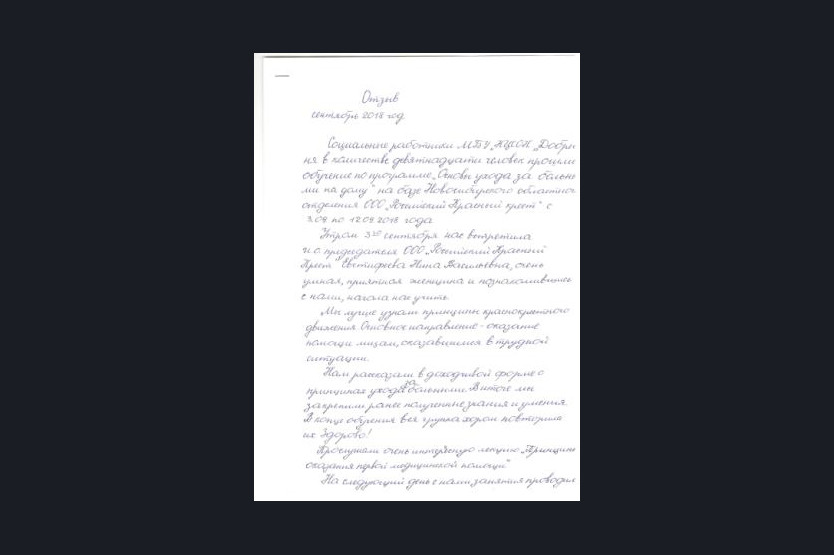 Отзыв
сентябрь 2018 год
Социальные работники МБУ КЦСОН „Добры
ня в количестве девятнадцати человек прошли
обучение по программе „Основы ухода за больны
ми на дому" на базе Новосибирского областного
отделения ООО „Российский Красный крест" с
3.09 по 12.09.2018 года
Утром 3го сентября нас встретила
и.о. председателя ООО „Российский Красный
Крест" Нина Васильевна, очень
умная, приятная женщина и познакомившись
с нами, начала нас учить.
Мы лучше узнали принципы краснокрестного
движения. Основное направление - оказание
помощи лицам, оказавшимся в трудной
ситуации.
Нам рассказали в доходчивой форме о
принципах ухода за больными. В итоге мы
закрепили ранее полученные знания и умения.
В конце обучения вся группа хором повторила
их. Здорово!
Прослушали очень интересную лекцию „Принципы
оказания первой медицинской помощи"
На следующий день с нами занятия проводил